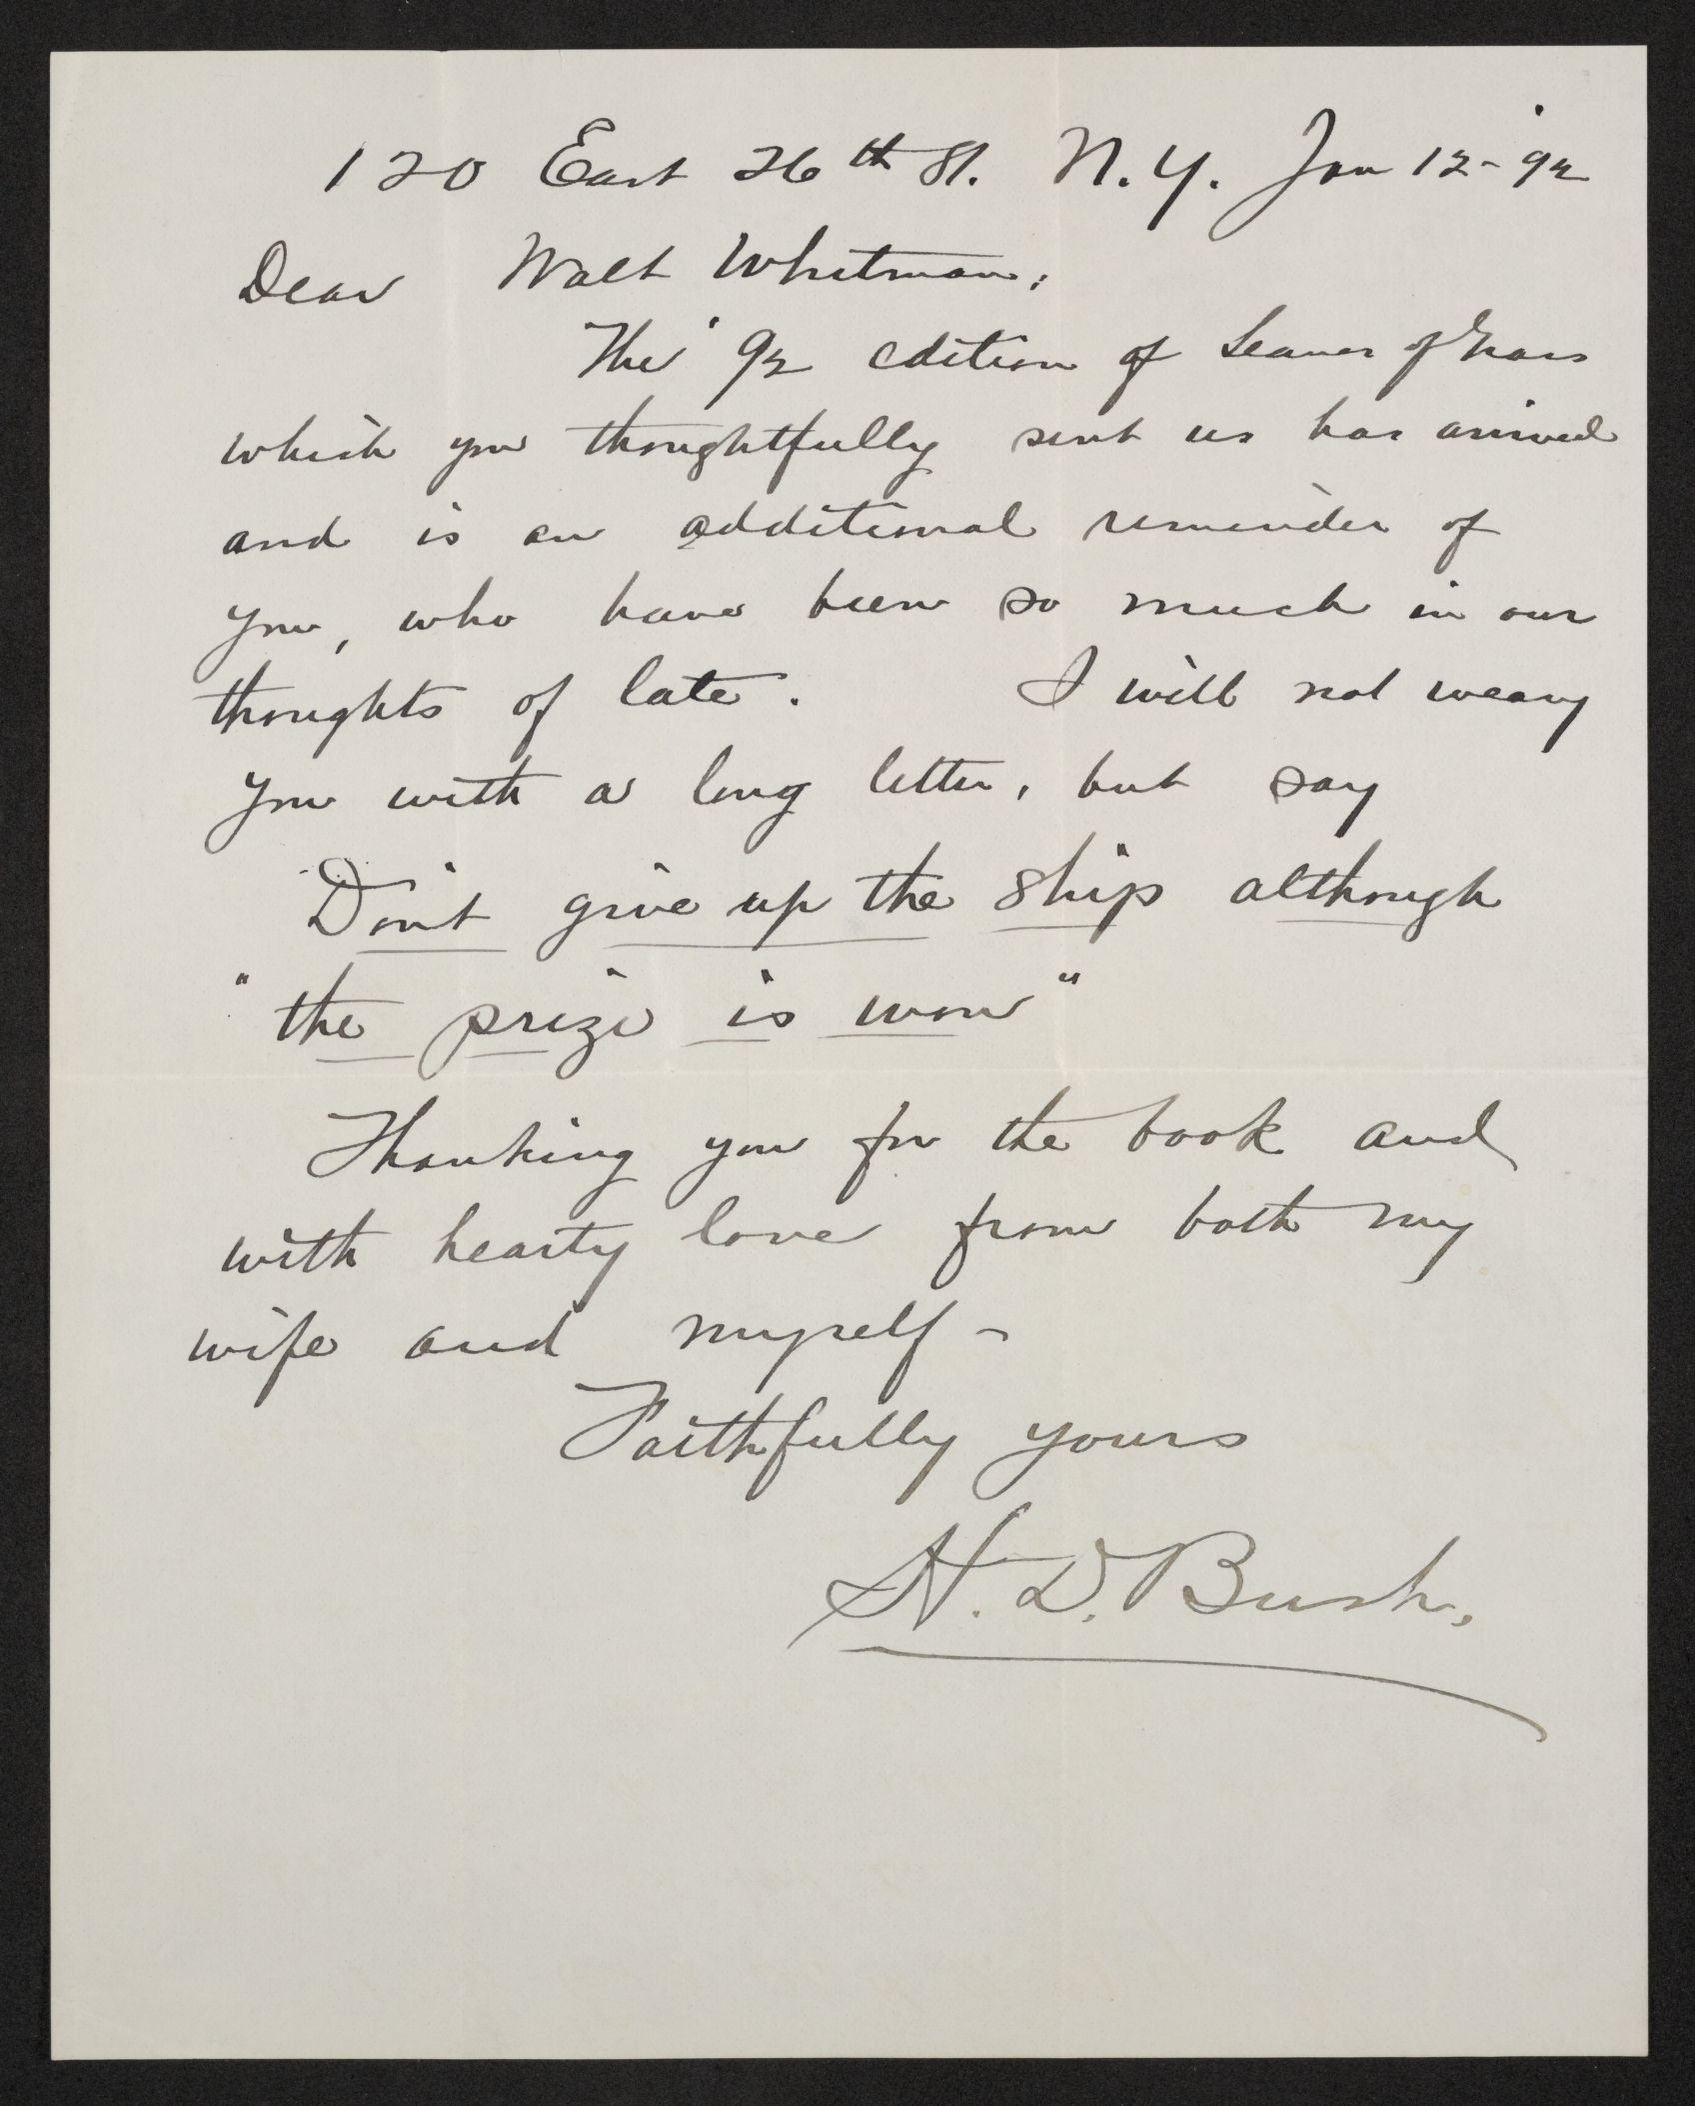 120 East 26th St. N.Y. Jan 12-'92
Dear Walt Whitman:
The '92 edition of Leaves of Grass
which you thoughtfully sent us has arrived
and is an additional reminder of
you, who have been so much in our
thoughts of late. I will not weary
you with a long letter, but say
Don't give up the ship although
"the prize is won"
Thanking you for the book and
with hearty love from both my
wife and myself -
Faithfully yours
H. D. Bush.